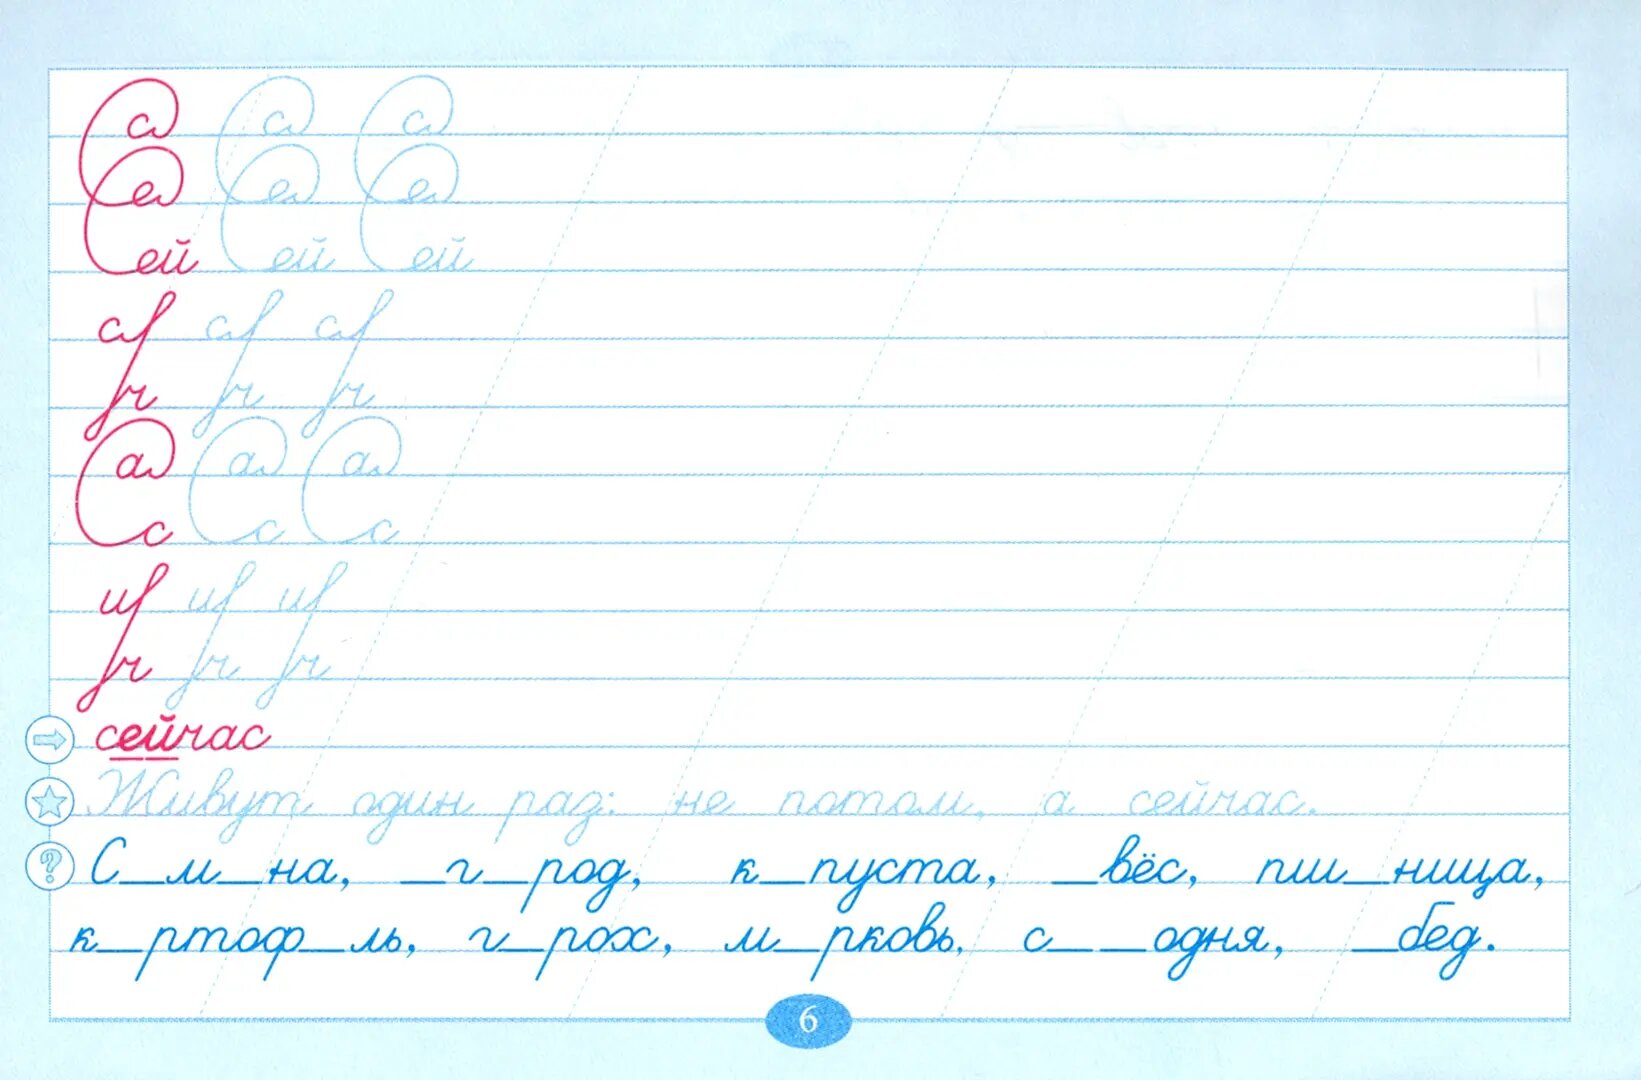 са са са
ел ел ел
ей ей ей
сч сч сч
ч ч ч
ал ал ал
с с с
ич ич ич
ч ч ч
сейчас
Живут один раз: не потом, а сейчас.
С_м_на, _г_род, к_пуста, _вёс, пш_ница,
к_ртоф_ль, г_рох, м_рковь, с_ _одня, _бед.
6